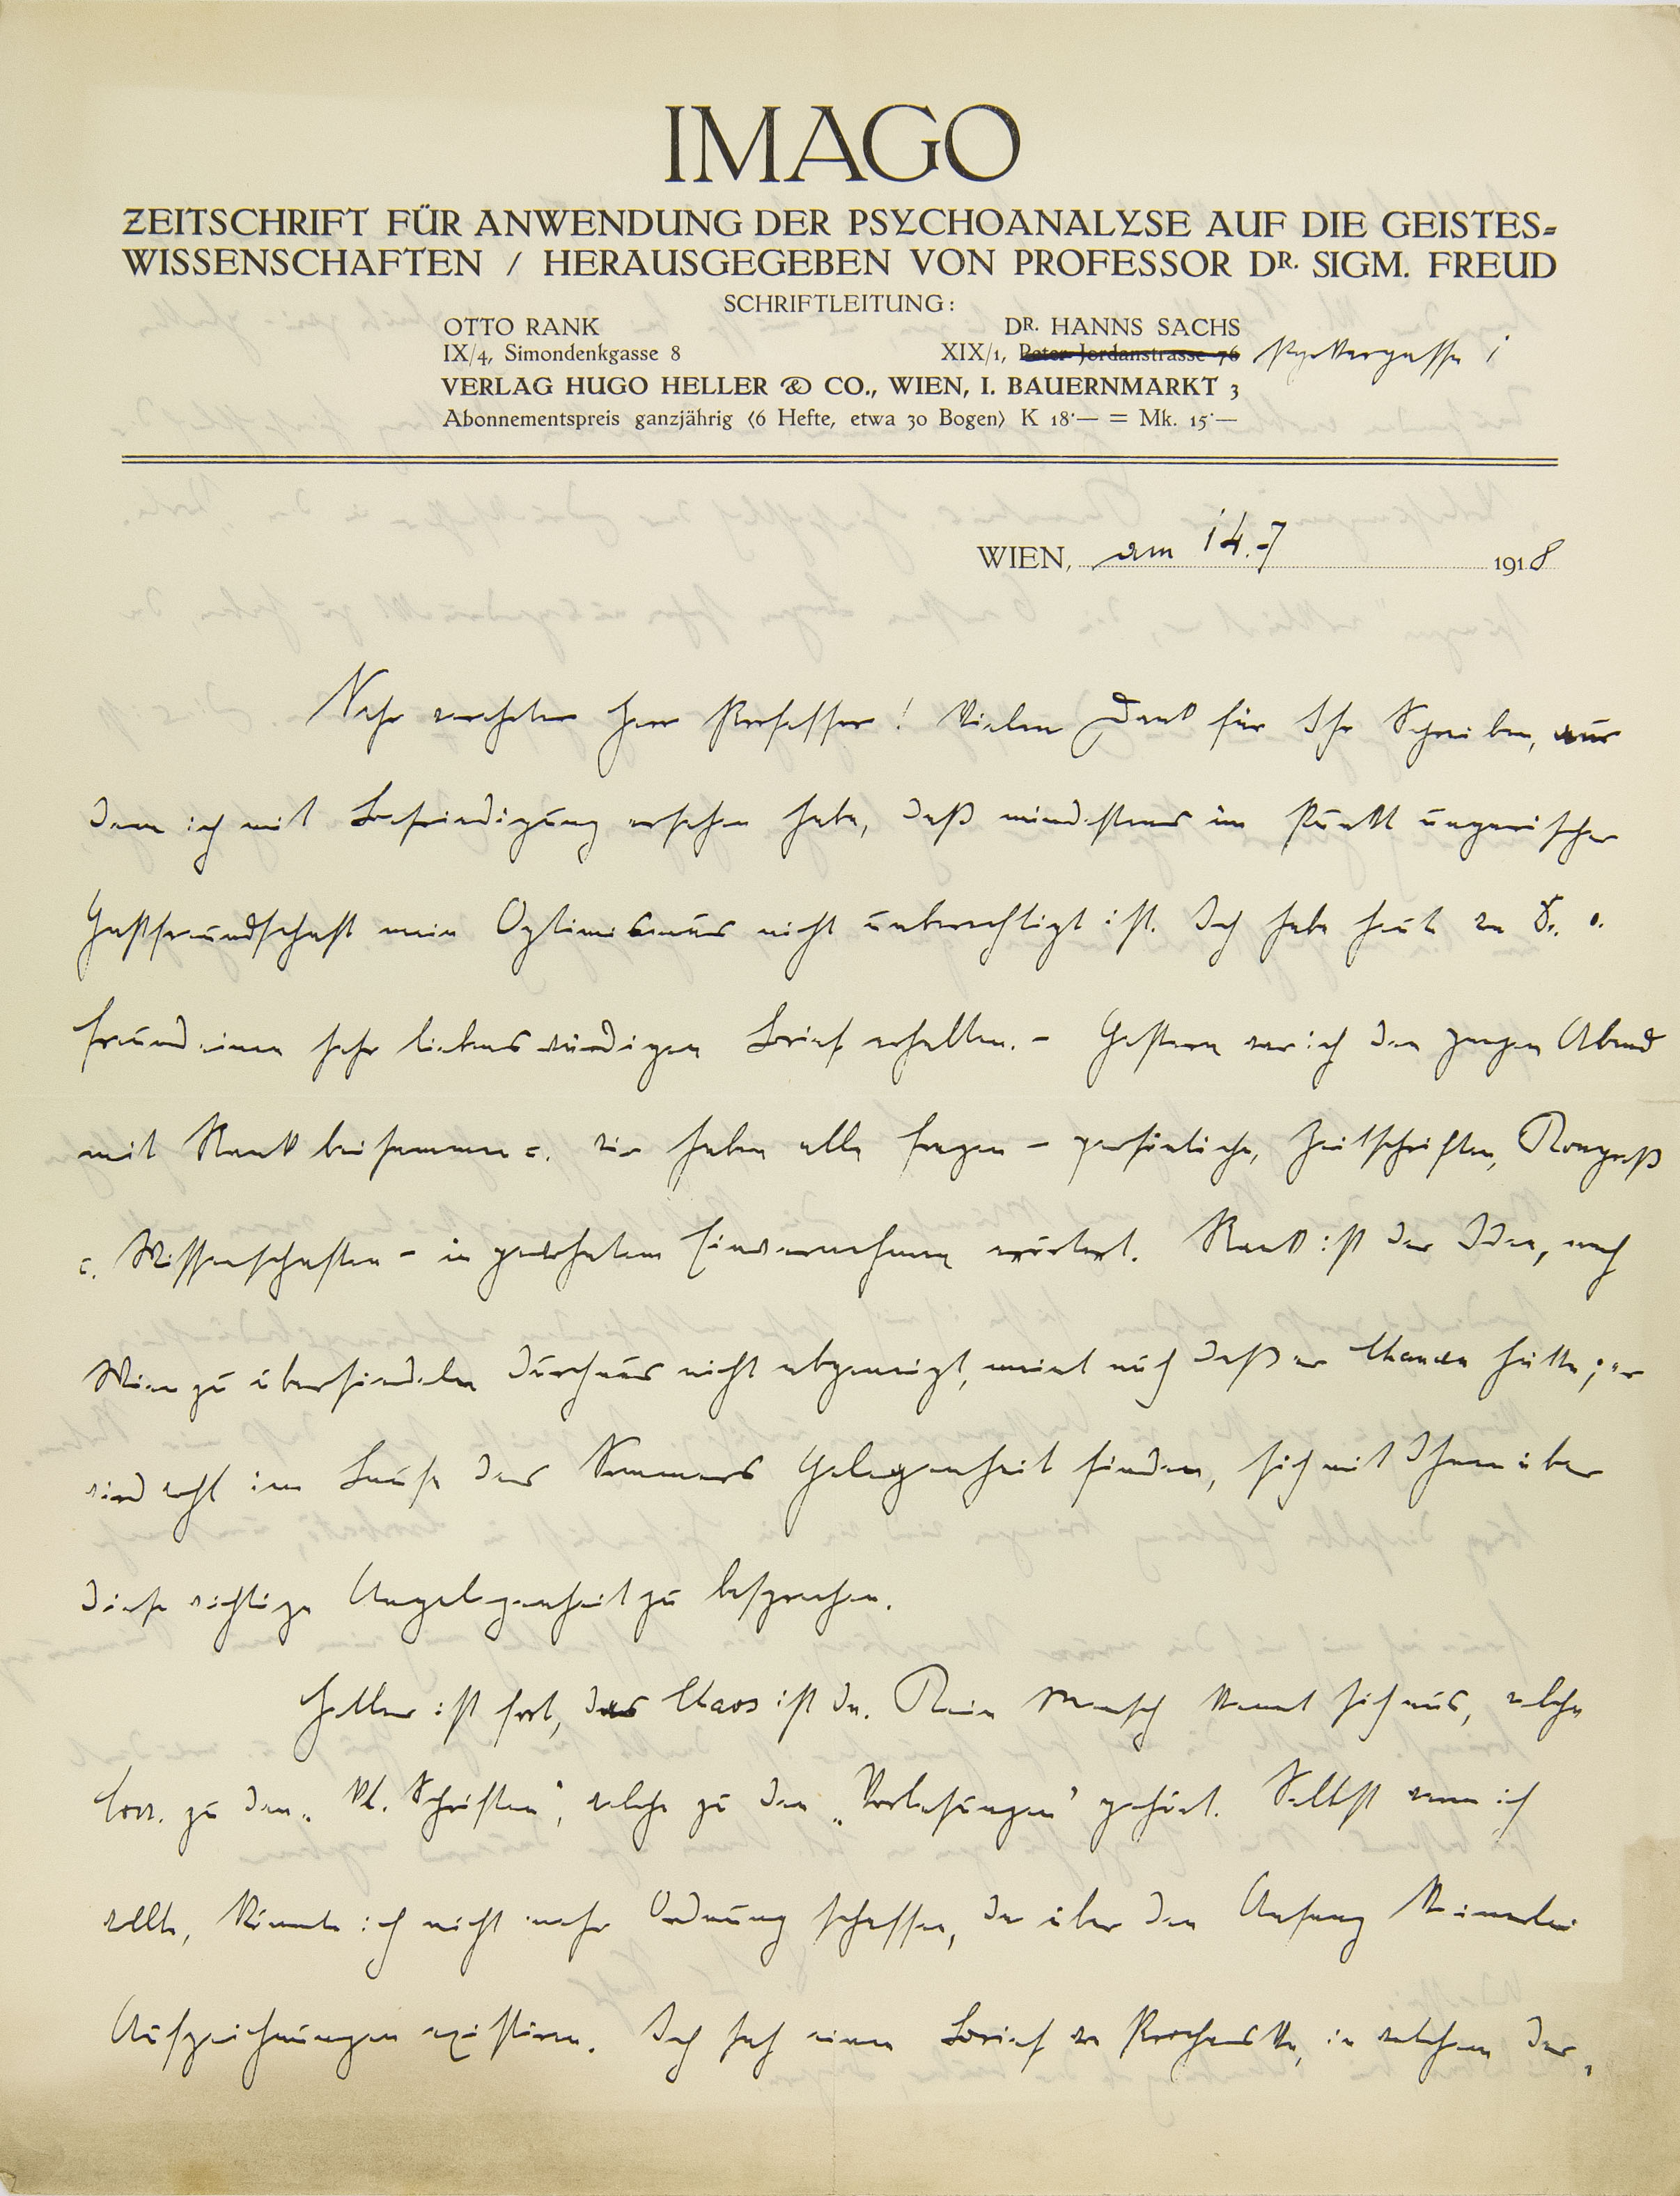 IMAGO
ZEITSCHRIFT FÜR ANWENDUNG DER PSYCHOANALYSE AUF DIE GEISTES-
WISSENSCHAFTEN / HERAUSGEGEBEN VON PROFESSOR DR. SIGM. FREUD
SCHRIFTLEITUNG:
OTTO RANK DR. HANNS SACHS
IX/4, Simondenkgasse 8 XIX/1, Peter Jordanstrasse 76
VERLAG HUGO HELLER & CO., WIEN, I. BAUERNMARKT 3
Abonnementspreis ganzjährig (6 Hefte, etwa 30 Bogen) K 18·— = Mk. 15·—
WIEN, am 14.7 1918
Sehr verehrter Herr Professor! Vielen Dank für Ihr Schreiben, aus
dem ich mit Befriedigung ersehen habe, daß mindestens im Punkt ungarischer
Gastfreundschaft mein Optimismus nicht unberechtigt ist. Ich habe heute von Dr. v.
Freund einen sehr liebenswürdigen Brief erhalten. - Gestern war ich den ganzen Abend
mit Rank beisammen u. wir haben alle Fragen - persönliche, Zeitschriften, Kongreß
u. Wissenschaften - in gewohntem Einvernehmen erörtert. Rank ist der Idee, nach
Wien zu übersiedeln durchaus nicht abgeneigt, meint auch daß er Chancen hätte; er
wird wohl im Laufe des Sommers Gelegenheit finden, sich mit Ihnen über
diese wichtige Angelegenheit zu besprechen.
Heller ist fort, das Chaos ist da. Kein Mensch kennt sich aus, welche
Corr. zu den „Kl. Schriften", welche zu den „Vorlesungen" gehört. Selbst wenn ich
wollte, könnte ich nicht mehr Ordnung schaffen, da über den Anfang keinerlei
Aufzeichnungen existieren. Ich sah einen Brief von Prochaska, in welchem der,